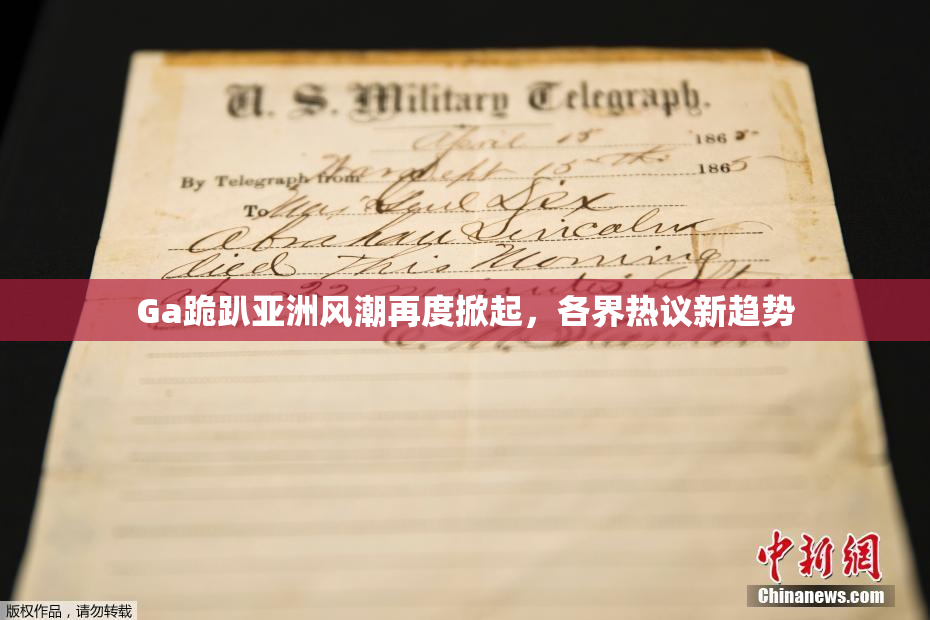 U. S. Military Telegraph.
April 15 1865
By Telegraph from War Dept 15th 1865
To Maj Genl Dix
Abraham Lincoln
died This Morning
at 22 minutes after
Ga跪趴亚洲风潮再度掀起，各界热议新趋势
中新网
Chinanews.com
版权作品，请勿转载